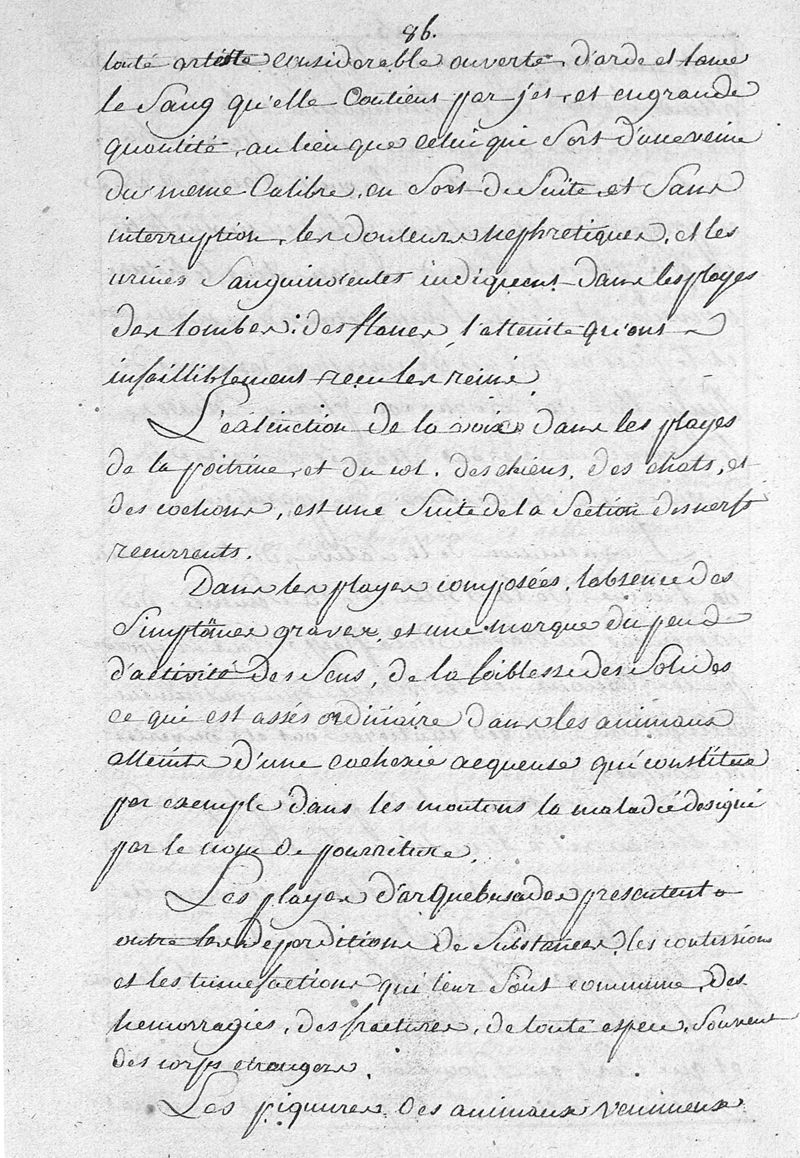 86.
touté artéste considerable ouverte, d'arde et lance
le Sang qu'elle Contiens par jet, et en grande
quantité, au lieu que celui qui Sort d'une veine
du meme Calibre, en Sort de Suite, et Sans
interruption, les douleurs nephretiques, et les
urines Sanguinolentes indiquent dans les playes
des lombes; des flancs, l'atteinte qu'ont
infailliblement recu les reins.
L'extinction de la voix dans les playes
de la poitrine, et du col. des chiens, des chats, et
des cochons, est une Suite de la Section des nerfs
recurrents.
Dans les playes composées, l'absence des
Simptômes graves, et une marque du peu
d'activité des Sens, de la foiblesse des Solides
ce qui est assés ordinaire dans les animaux
atteints d'une cachexie acqueuse qui constitue
par exemple dans les moutons la maladié designé
par le nom de pourriture.
Les playes d'arquebusades presentent
outre les deperditions de Substances, les contussions
et les tumefactions qui leur Sont commune, des
hemorragies, des fractures, de touté espece, Souvent
des corps etrangers.
Les piquures des animaux venimeux